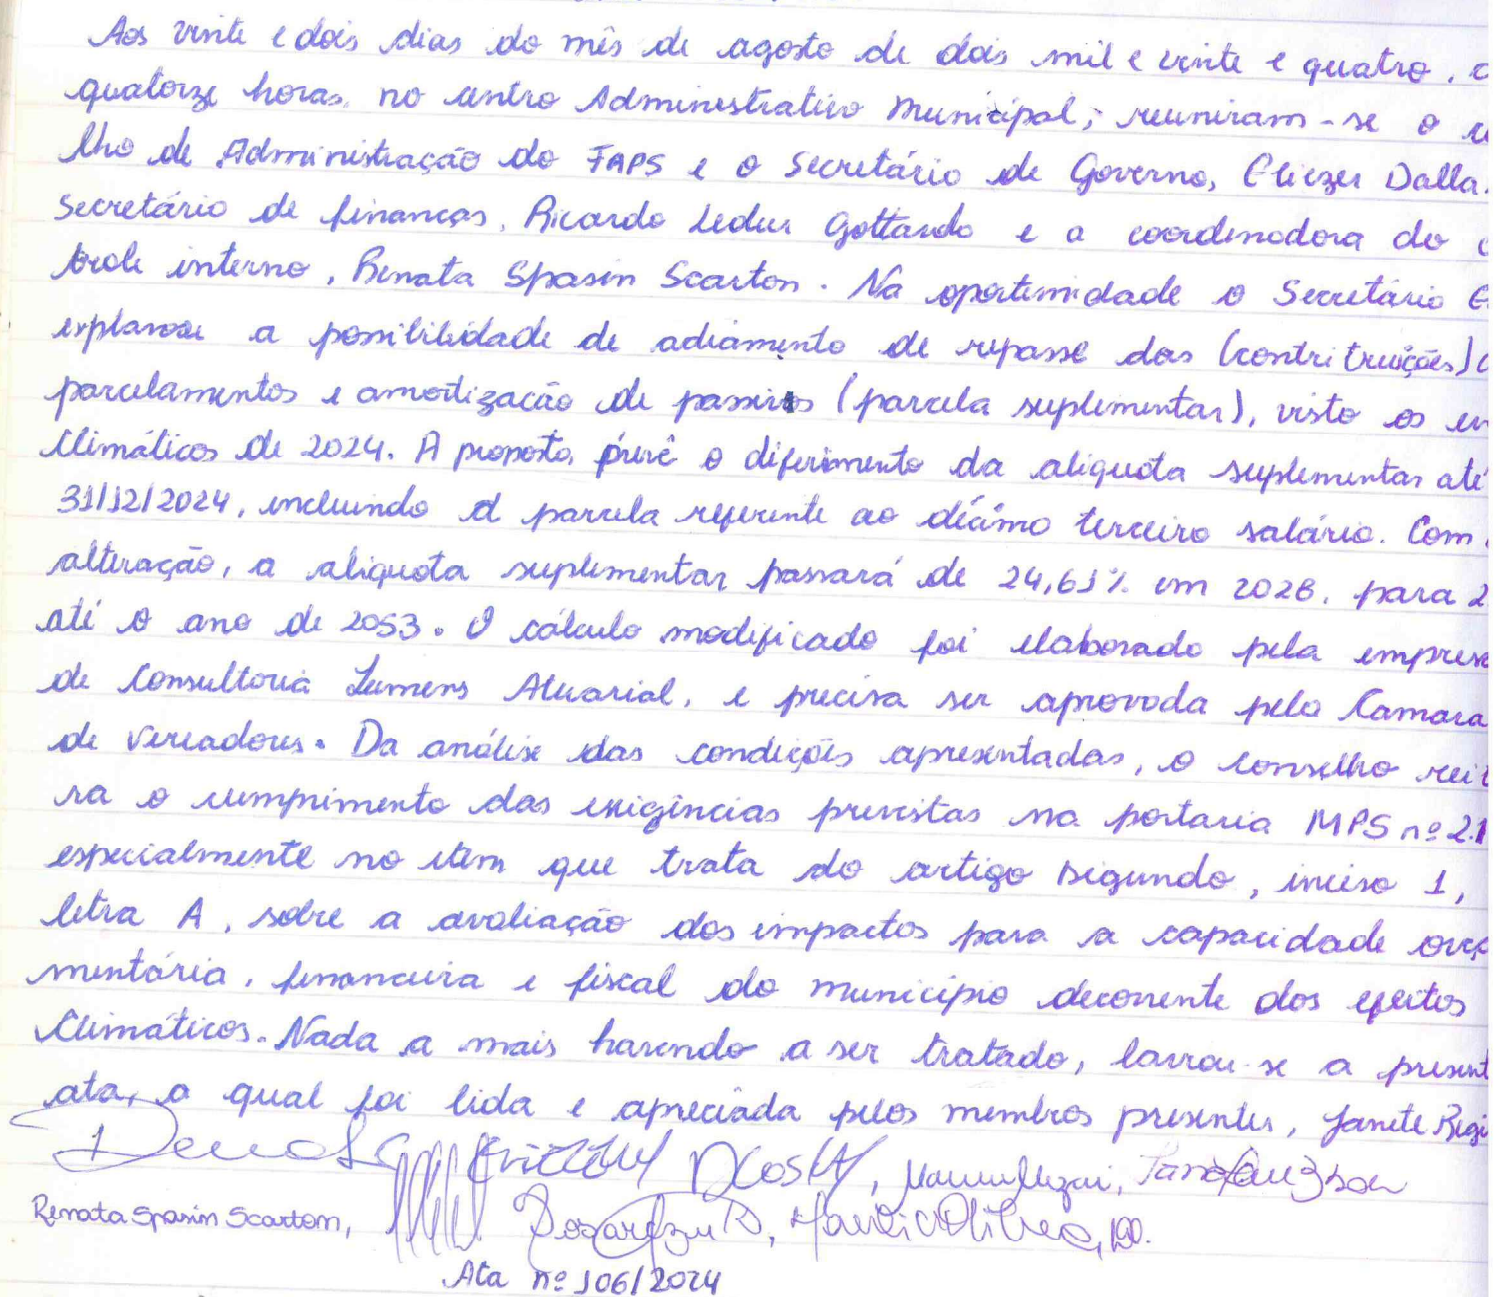 Aos vinte e dois dias do mês de agosto de dois mil e vinte e quatro, 
quatorze horas, no centro Administrativo Municipal; reuniram-se o
lho de Administração do FAPS e o Secretário de Governo, Eliezer Dalla
Secretário de finanças, Ricardo Gottardo e a coordenadora do
trole interno, Renata Spasin Scarton. Na oportunidade o Secretário E
explanou a possibilidade de adiamento de repasse das (contribuições)
parcelamentos e amortização de passivos (parcela suplementar), visto os
Climáticos de 2024. A proposta, prevê o diferimento da alíquota suplementar até
31/12/2024, incluindo a parcela referente ao décimo terceiro salário. Com
alteração, a alíquota suplementar passará de 24,61% em 2028, para 2
até o ano de 2053. O cálculo modificado foi elaborado pela empres
de Consultoria Lumens Atuarial, e precisa ser aprovada pela Camara
de Vereadores. Da análise das condições apresentadas, o conselho reit
ra o cumprimento das exigências previstas na portaria MPS nº 2.1
especialmente no item que trata do artigo segundo, inciso 1,
letra A, sobre a avaliação dos impactos para a capacidade orça
mentária, financeira e fiscal do município decorrente dos efeitos
Climáticos. Nada a mais havendo a ser tratado, lavrou-se a present
ata, a qual foi lida e apreciada pelos membros presentes, Janete Regi
Renata Spasin Scarton,
Ata nº 106/2024